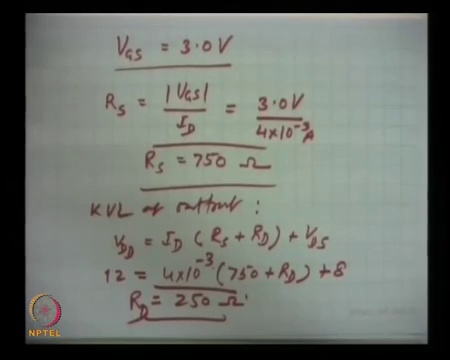 V_GS = 3.0 V
R_S = |V_GS| / I_D = 3.0 V / 4×10^-3 A
R_S = 750 Ω
KVL at output :
V_DD = I_D ( R_S + R_D ) + V_DS
12 = 4×10^-3 (750 + R_D ) + 8
R_D = 250 Ω
NPTEL